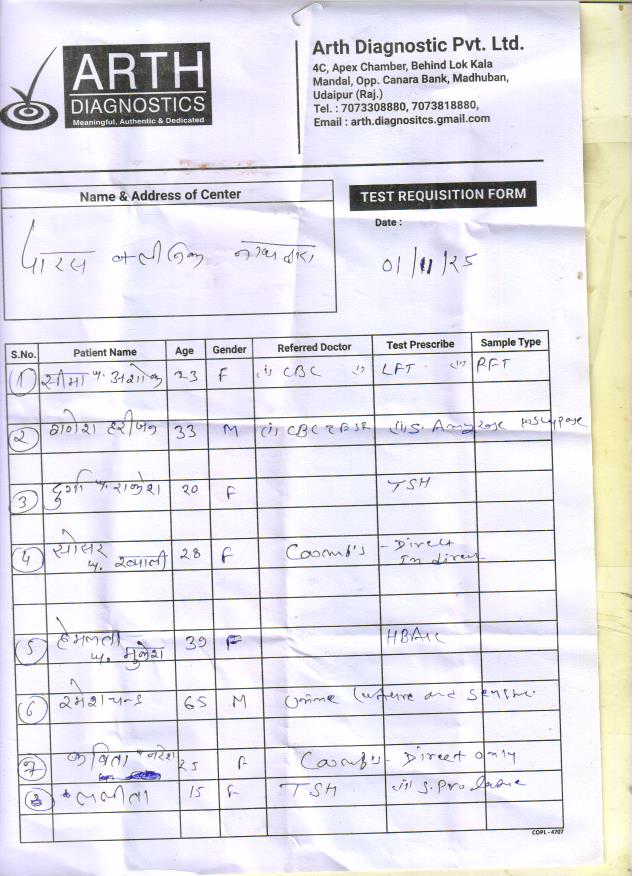 ARTH
DIAGNOSTICS
Meaningful, Authentic & Dedicated
Arth Diagnostic Pvt. Ltd.
4C, Apex Chamber, Behind Lok Kala
Mandal, Opp. Canara Bank, Madhuban,
Udaipur (Raj.)
Tel. : 7073308880, 7073818880,
Email : arth.diagnositcs.gmail.com
Name & Address of Center
TEST REQUISITION FORM
Date :
पारस क्लीनिक
01/11/25
S.No. Patient Name Age Gender Referred Doctor Test Prescribe Sample Type
1 सीमा w. अशोक 23 F (i) CBC (ii) LFT (iii) RFT
2 गणेश हरीजन 33 M (i) CBC ESR (ii) S. Amylase
3 दुर्गा w. राकेश 20 F TSH
4 28 F Coomb's - Direct
In direct
5 हेमलता 39 F HBA1C
w. मुकेश
6 रमेश चन्द्र 65 M Urine Culture and Sensiti.
7 कविता w नरेश 25 F Coomb's - Direct only
8 ललीता 15 F TSH (ii) S. Prolactin
COPL - 4707